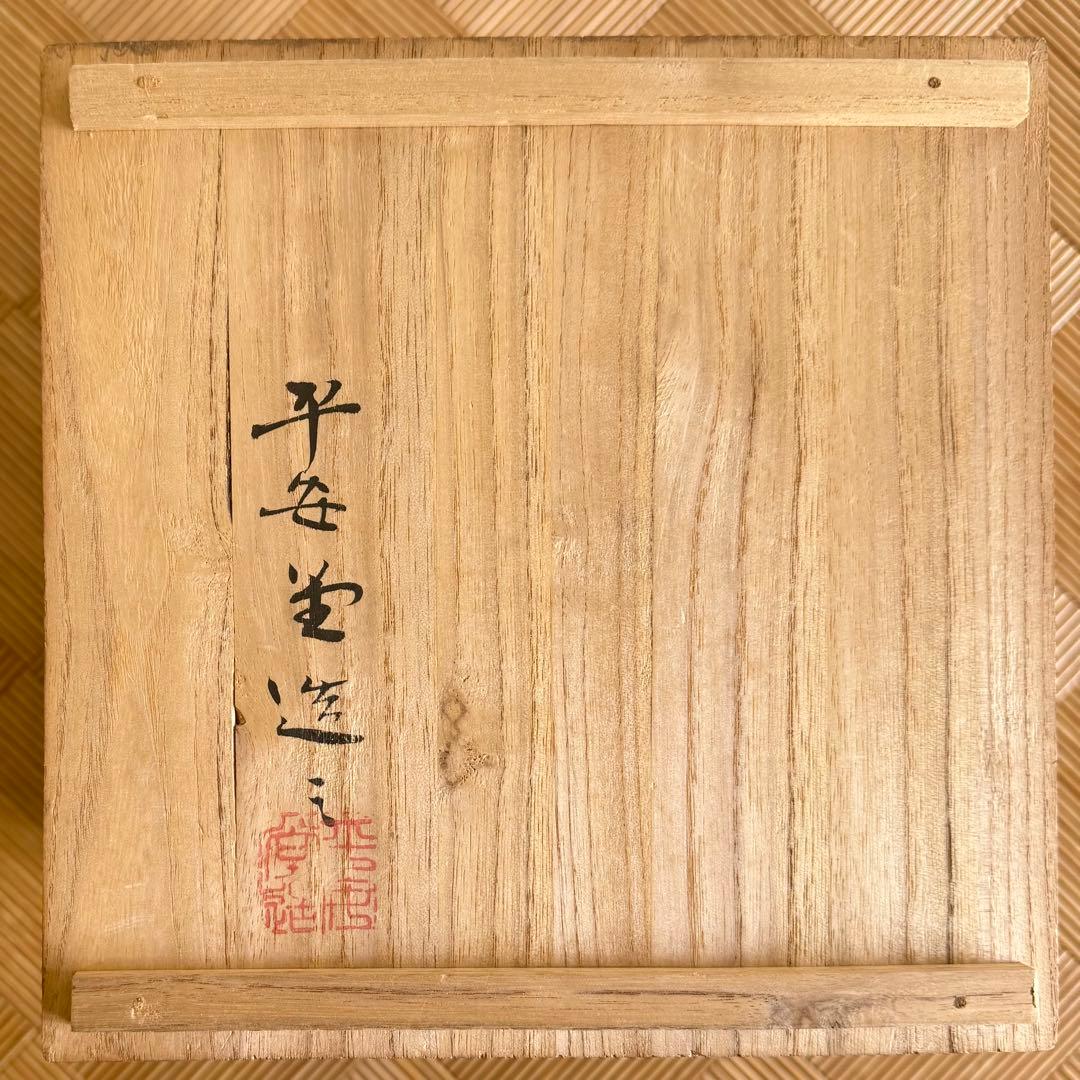 平安堂造之